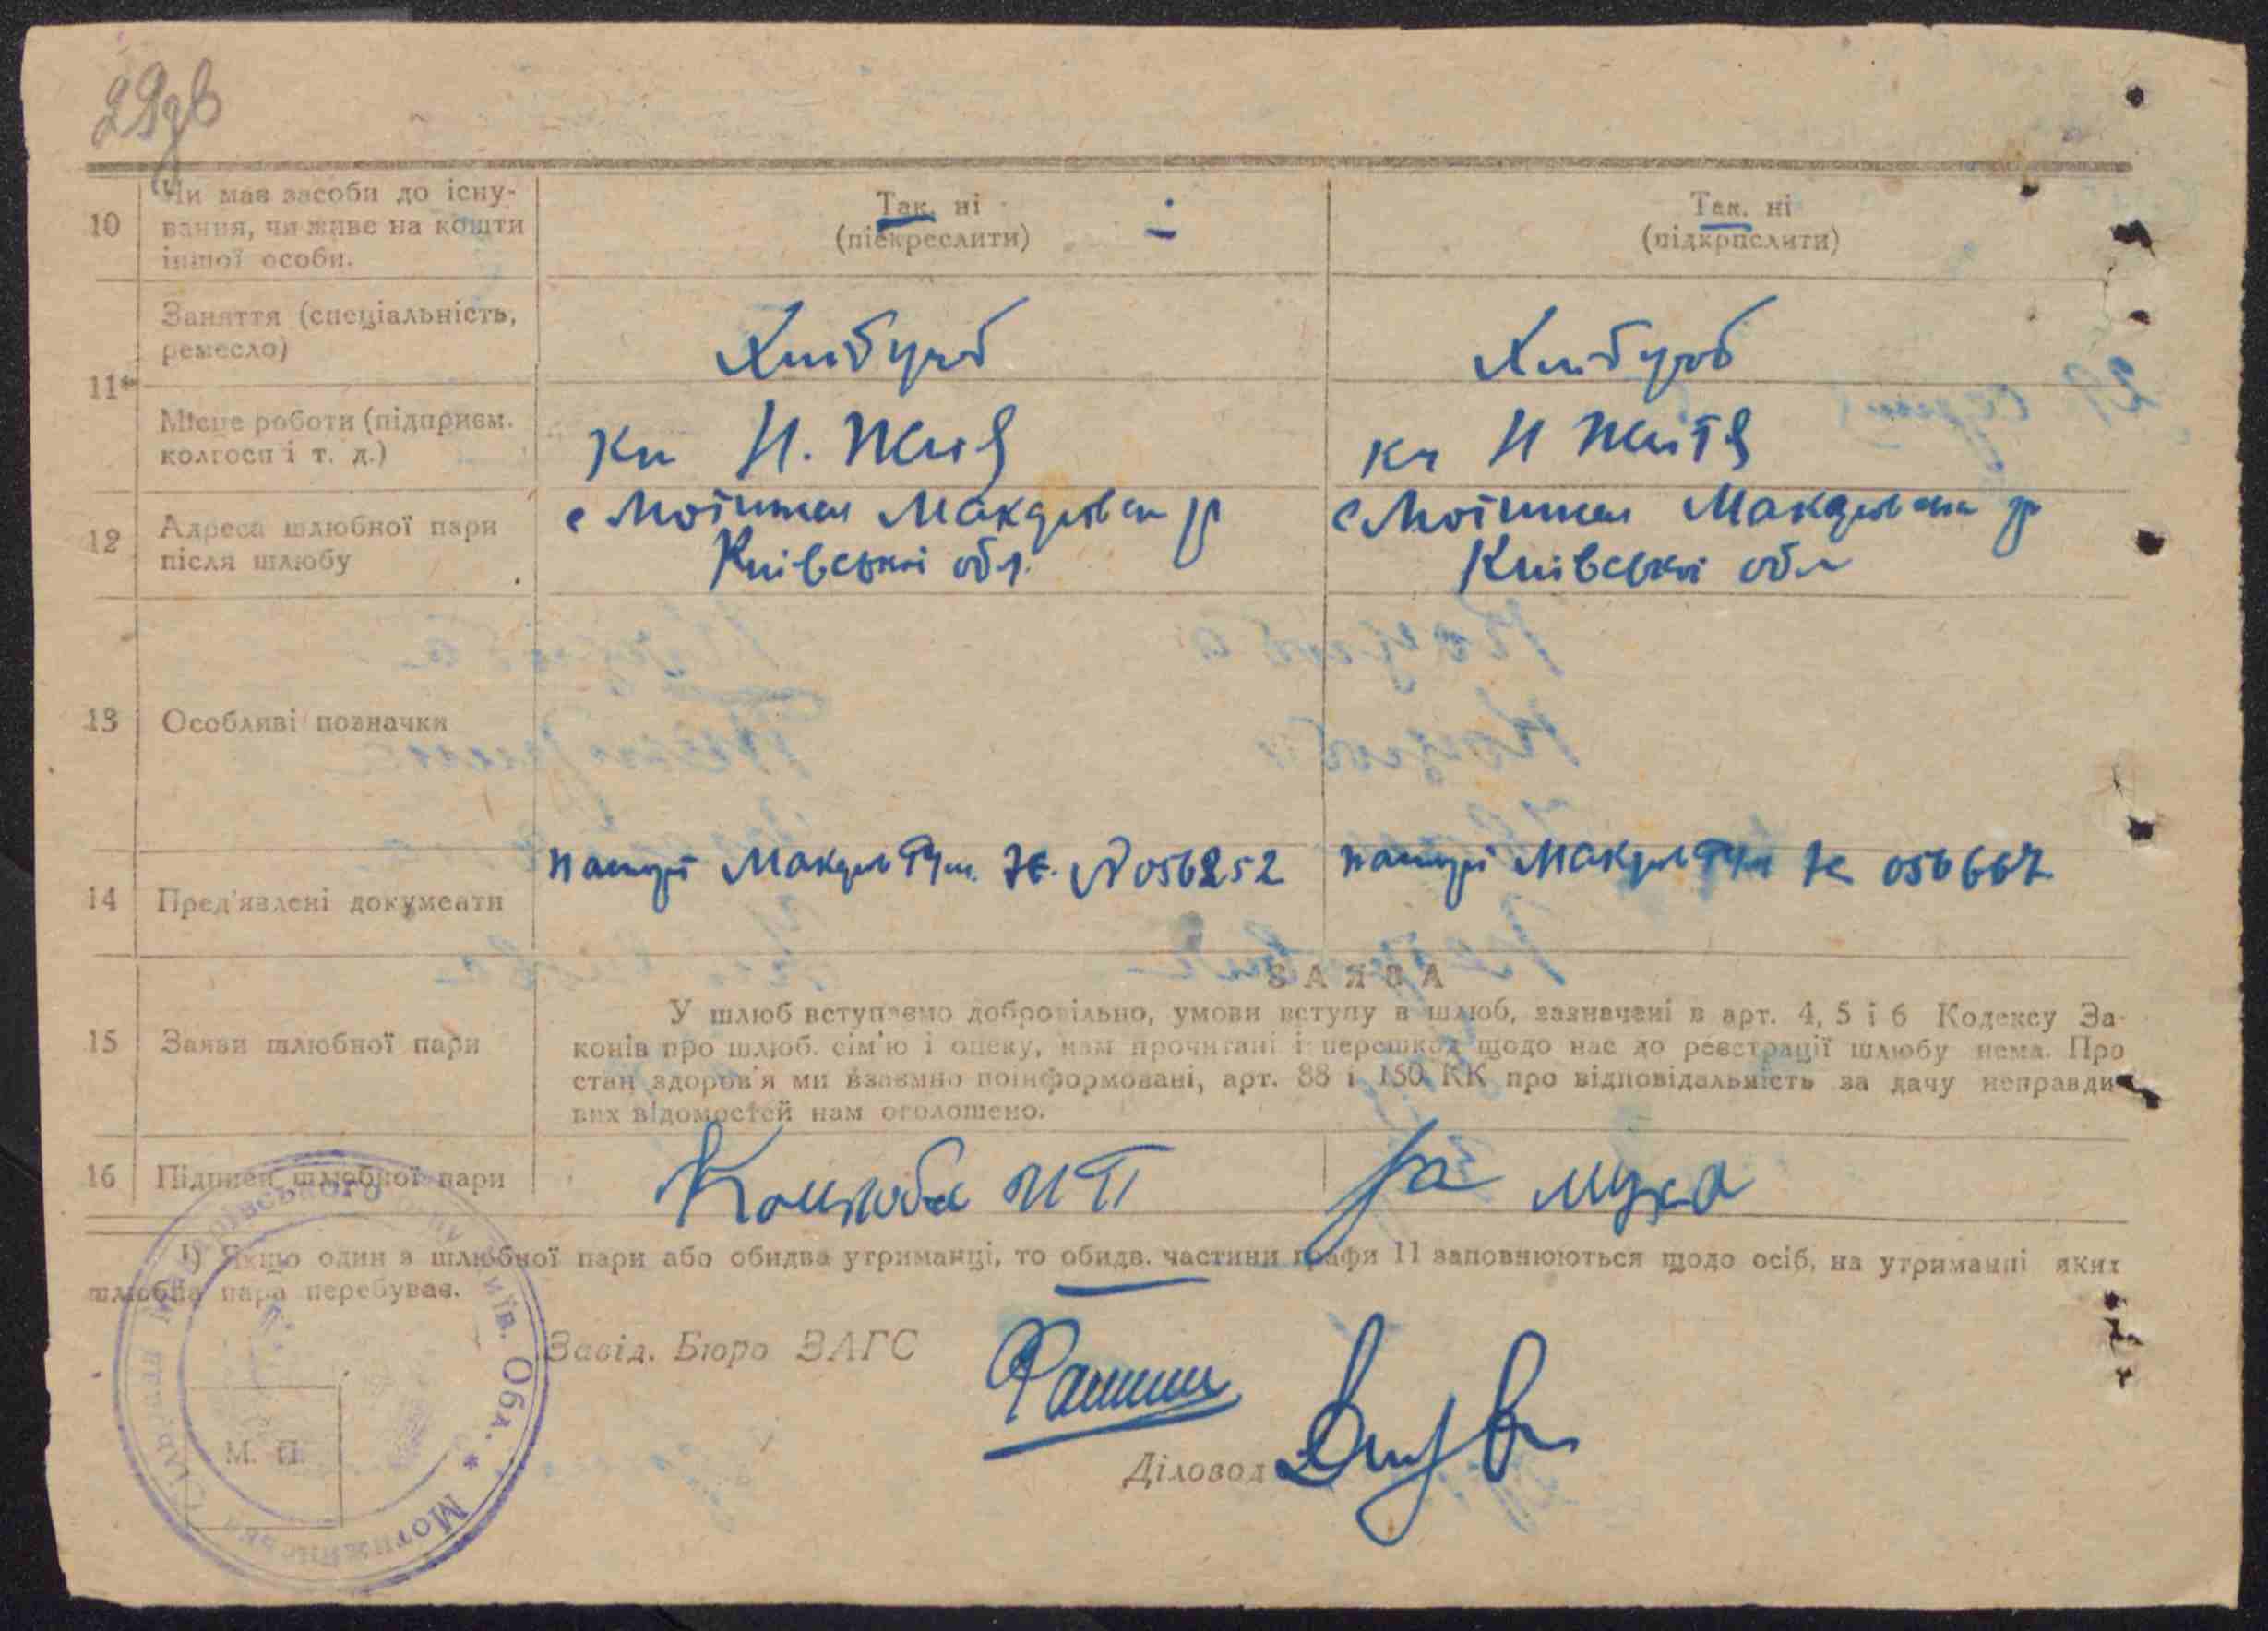 29зв
10 Чи має засоби до існу-
вання, чи живе на кошти
іншої особи.
Так, ні
(підкреслити)
Так, ні
(підкрпслити)
11*
Заняття (спеціальність,
ремесло)
Хлібороб
Хлібороб
Місце роботи (підприєм.
колгосп і т. д.)
Н. Життя
Н Життя
12 Адреса шлюбної пари
після шлюбу
с Мотижин Макарівськ р
Київської обл.
с Мотижин Макарівськ р
Київської обл
13 Особливі позначки
14 Пред'явлені документи
паспорт Макарів ЖЕ. № 056252
паспорт Макарів 056667
ЗАЯВА
15 Заяви шлюбної пари
У шлюб вступаємо добровільно, умови вступу в шлюб, зазначені в арт. 4, 5 і 6 Кодексу За-
конів про шлюб. сім'ю і опеку, нам прочитані і перешкод щодо нас до реєстрації шлюбу нема. Про
стан здоров'я ми взаємно поінформовані, арт. 88 і 150 КК про відповідальність за дачу неправди-
вих відомостей нам оголошено.
16 Підписи шлюбної пари
Коцюба И П
Муха
1) Якщо один з шлюбної пари або обидва утриманці, то обидв. частини графи 11 заповнюються щодо осіб, на утриманні яких
шлюбна пара перебуває.
Завід. Бюро ЗАГС
Діловод
М. П.
Мотижинська Сільрада Макарівського Київ. Обл. *